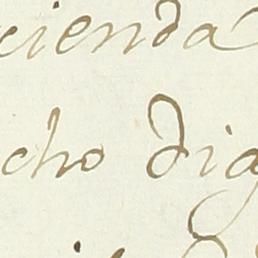 cienda
cho dig